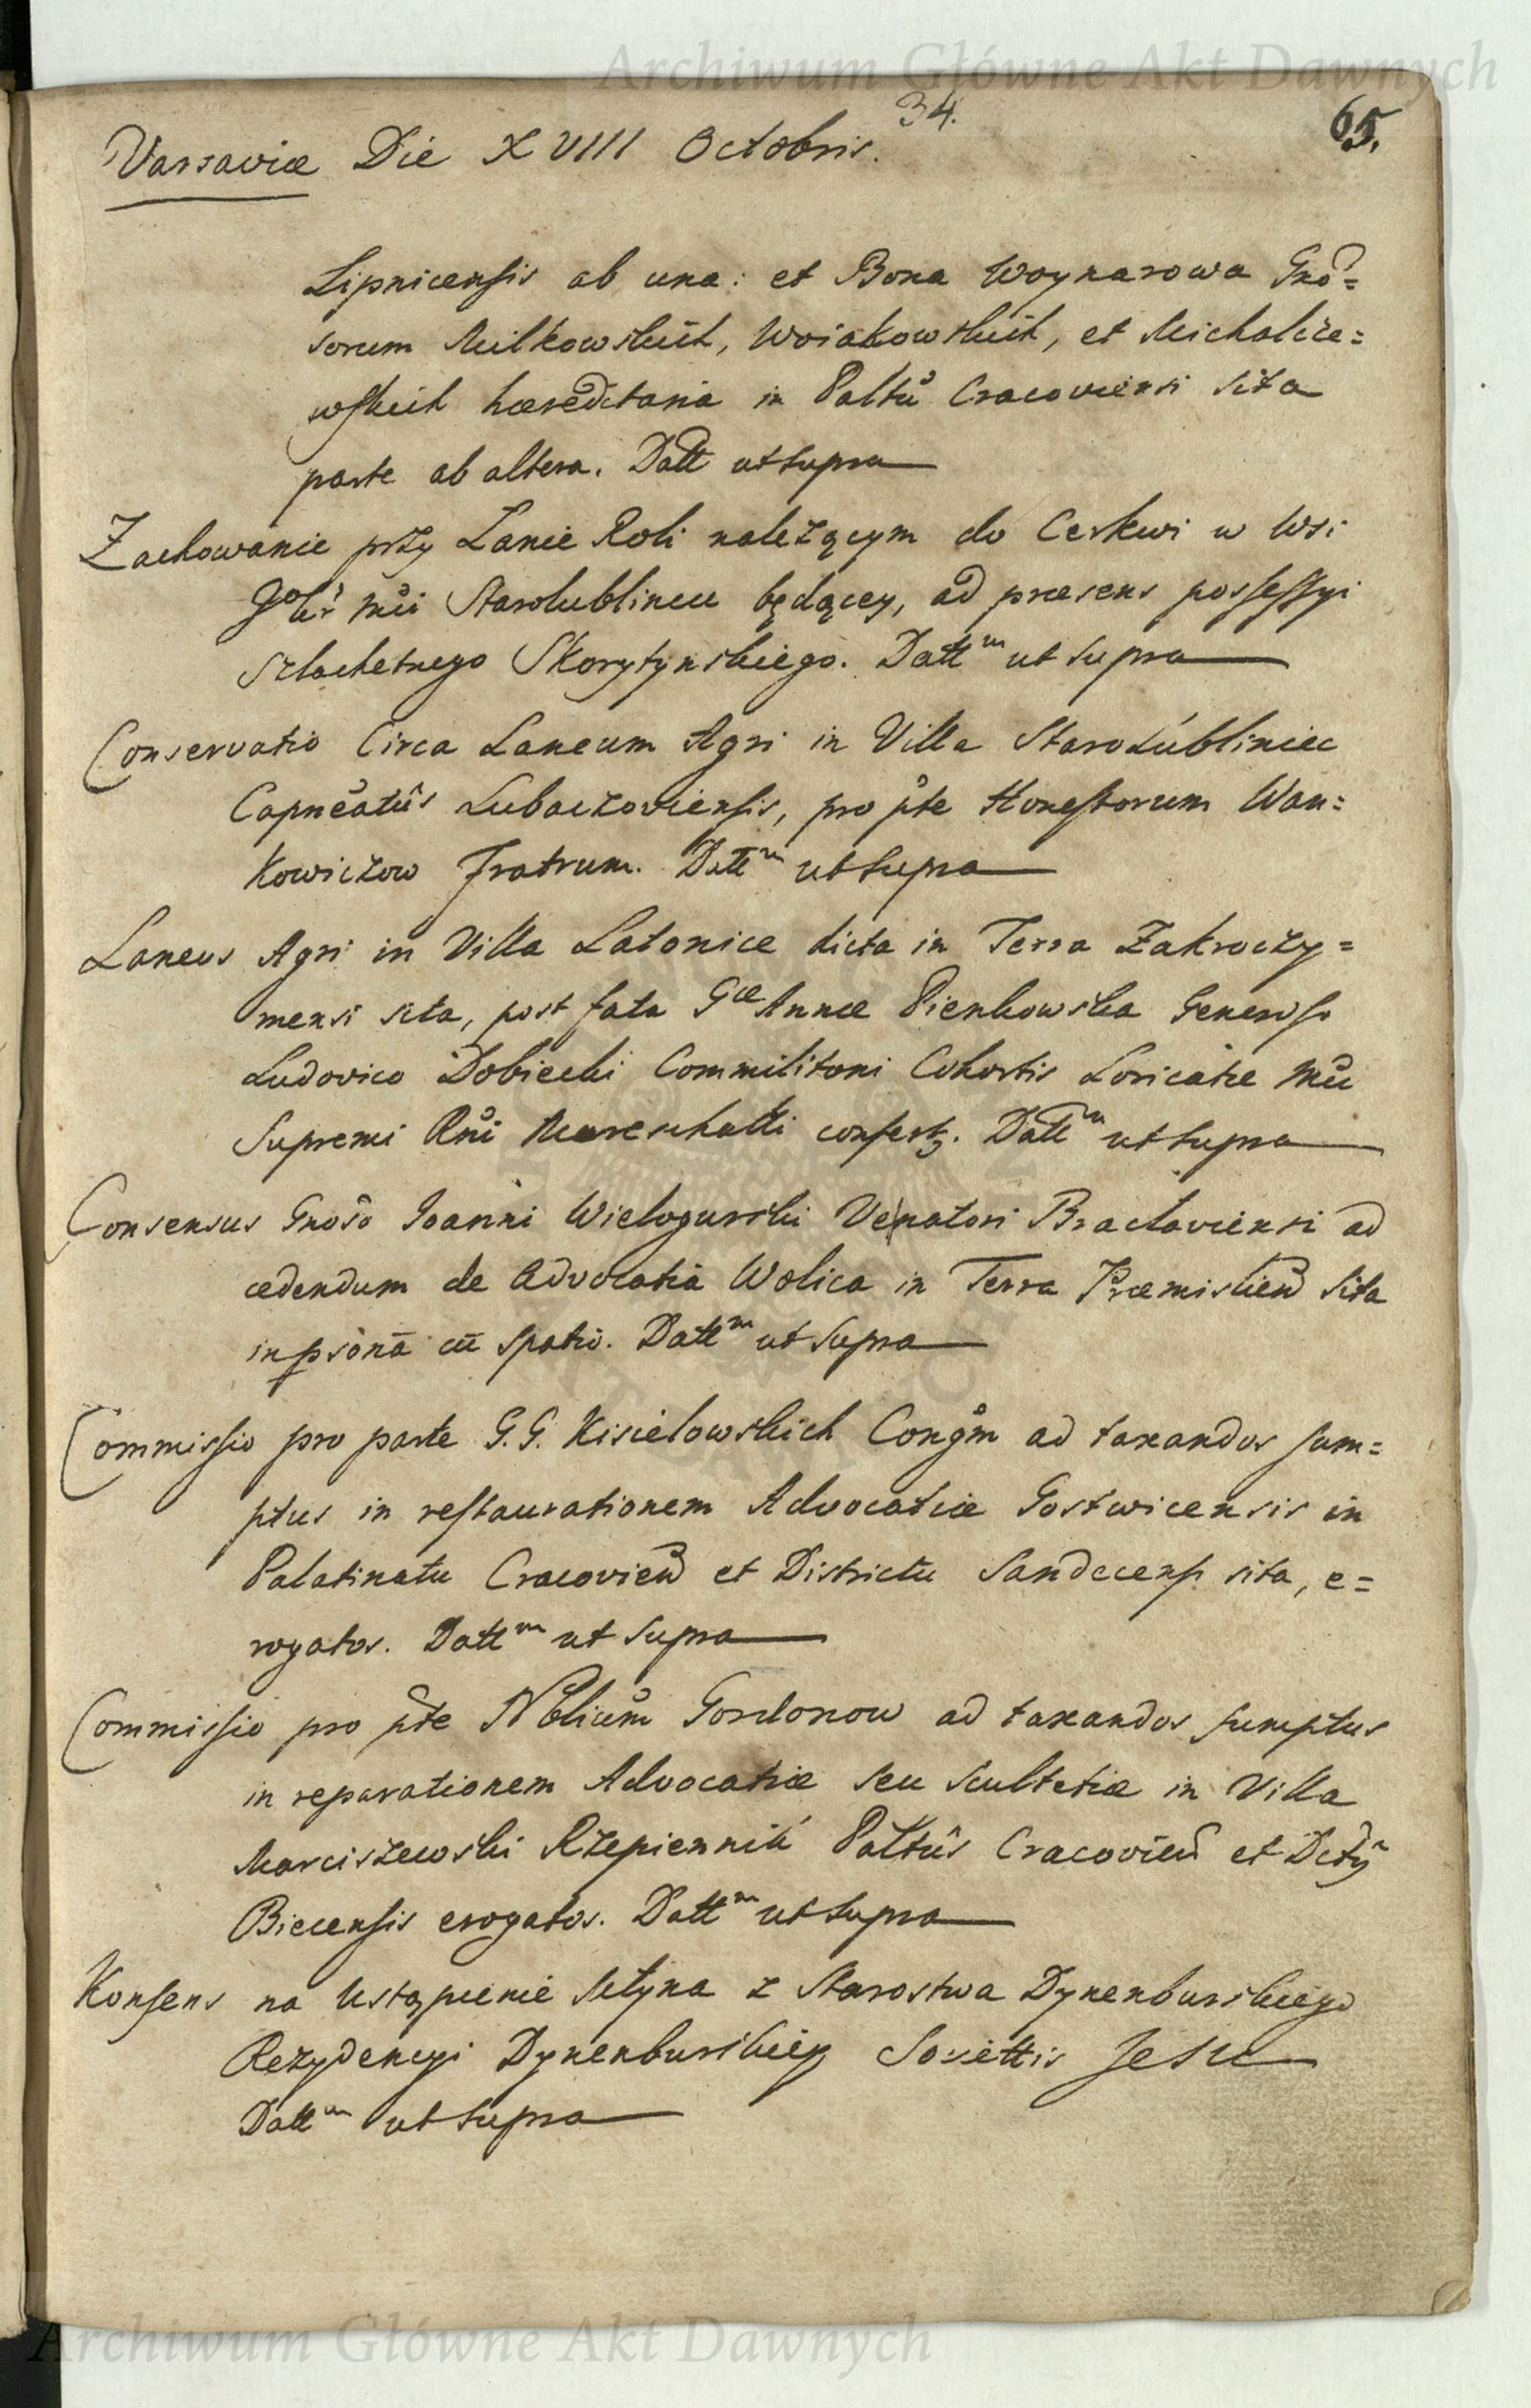 Archiwum Główne Akt Dawnych
34.
65.
Varsaviæ Die XVIII Octobris.
Lipnicensis ab una: et Bona Woynarowa Gno=
sorum Milkowskich, Woiakowskich, et Michalcze=
wskich hæreditaria in Palttu Cracoviensi sita
parte ab altera. Datt ut supra
Zachowanie przy Lanie Roli należącym do Cerkwi w Wsi
Starolublincu będącey, ad præsens possessyi
szlachetnego Skorytynskiego. Datt m ut supra
Conservatio Circa Laneum Agri in Villa StaroLubliniec
Capneatus Lubaczoviensis, pro pte Honestorum Wan=
kowiczow Fratrum. Datt m ut supra
Laneus Agri in Villa Latonice dicta in Terra Zakroczy=
mensi sita, post fata Gæ Annæ Pienkowska Generoso
Ludovico Dobiecki Commilitoni Cohortis Loricatæ Mci
Supremi Rni Mareschalli confertz. Datt m ut supra
Consensus Gnoso Ioanni Wielogurski Venatori Braclaviensi ad
cedendum de Advocatia Wolica in Terra Præmislien sita
in psona cu spatio. Datt m ut supra
Commissio pro parte G.G. Kisielowskich Congm ad taxandos sum=
ptus in restaurationem Advocatiæ Gostwicensis in
Palatinatu Cracovien et Districtu Sandecens sita, e=
rogatos. Datt m ut supra
Commissio pro pte Nblium Gordonow ad taxandos sumptus
in reparationem Advocatiæ seu Scultetiæ in Villa
Marciszewski Rzepiennik Palttus Cracovien et Dctus
Biecensis erogatos. Datt m ut supra
Konsens na Ustąpienie Młyna z Starostwa Dynenburskiego
Rezydencyi Dynenburskiey Soviettis Jesu
Datt m ut supra
Archiwum Główne Akt Dawnych